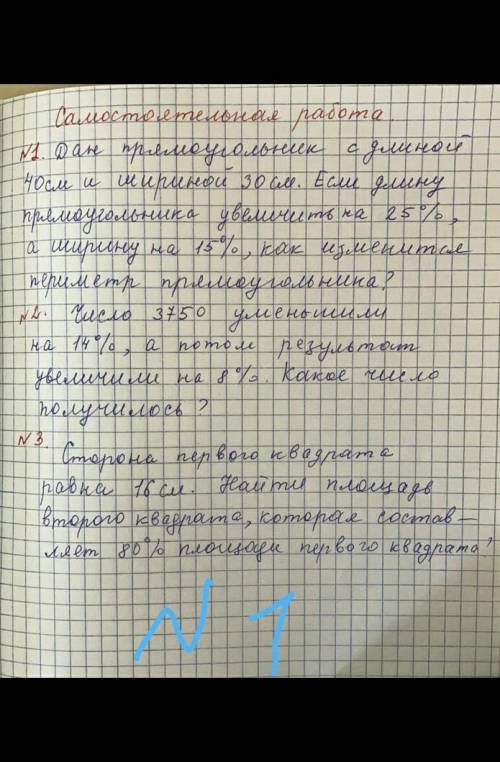 Самостоятельная работа.
№1. Дан прямоугольник с длиной
40см и шириной 30см. Если длину
прямоугольника увеличить на 25%,
а ширину на 15%, как изменится
периметр прямоугольника?
№2. Число 3750 уменьшили
на 14%, а потом результат
увеличили на 8%. Какое число
получилось?
№3
Сторона первого квадрата
равна 16см. Найти площадь
второго квадрата, которая состав-
ляет 80% площади первого квадрата?
N 1